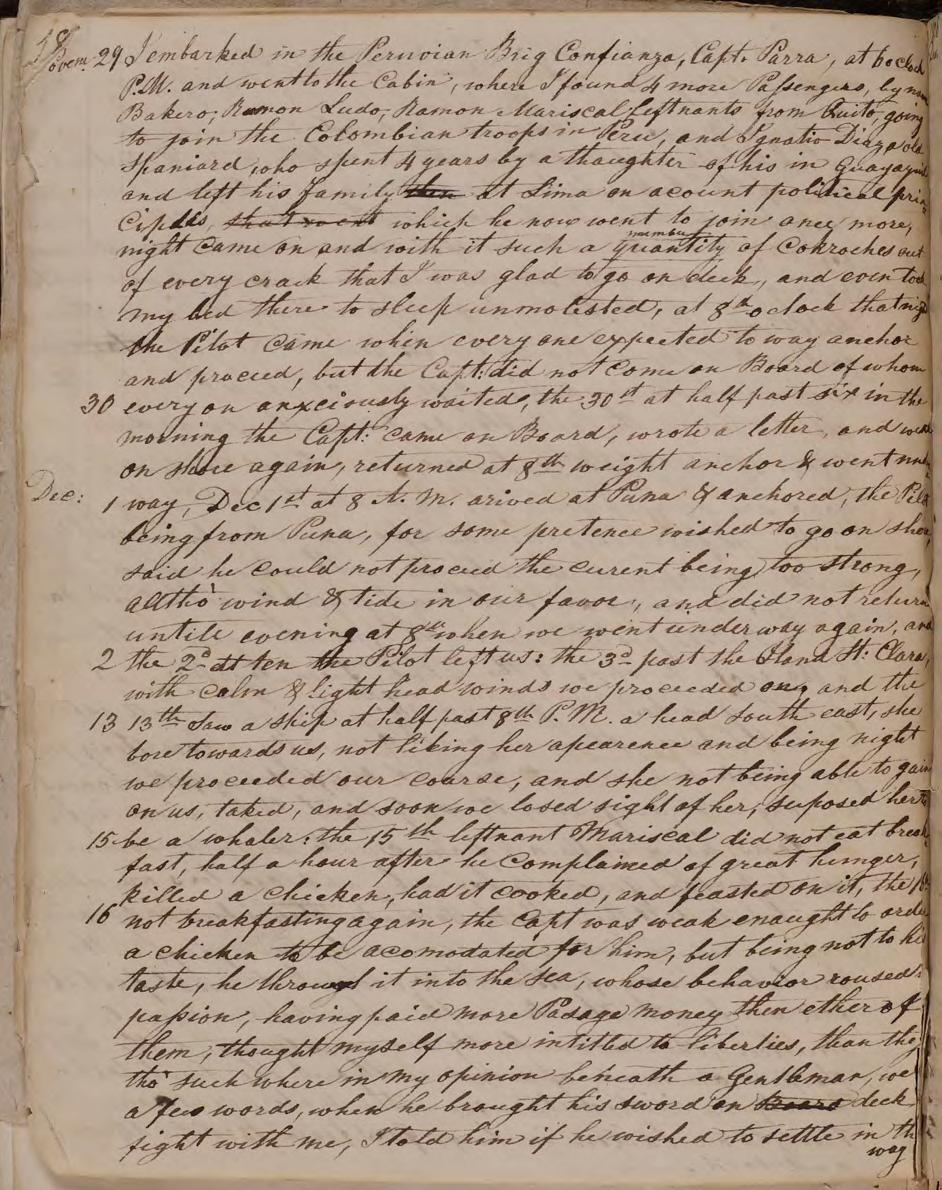 18
Novem: 29 I embarked in the Peruvian Brig Confianza, Capt. Parra, at 6 oclock
P.M. and went to the Cabin, where I found 4 more Passengers, by name
Bakero, Ramon Ludo, Ramon Mariscal leftnants from Quito, going
to join the Colombian troops in Peru, and Ignatio Diaz a old
Spaniard, who spent 4 years by a thaughter of his in Guayaquil
and left his family then at Lima on acount political prin
ciples that went which he now went to join once more,
number
night came on and with it such a quantity of Cokroches out
of every crack that I was glad to go on deck, and even took
my bed there to sleep unmolested, at 8th oclock that nigt
the Pilot came when every one expected to way anchor
and proceed, but the Capt: did not come on Board of whom
30 every on anxciously waited, the 30st at half past six in the
morning the Capt: came on Board, wrote a letter, and went
on shore again, returned at 8th weight anchor & went unde
Dec: 1 way, Dec 1st at 8 A.M. arived at Puna & anchored, the Pilot
being from Puna, for some pretence wished to go on shore,
said he could not proceed the curent being too strong,
altho' wind & tide in our favor, and did not return
untile evening at 8th when we went under way again, and
2 the 2d at ten the Pilot left us: the 3d past the Iland St: Clara,
with calm & light head winds we proceeded on, and the
13 13th Saw a ship at half past 8th P.M. a head South east, she
bore towards us, not liking her apearence and being night
we proceeded our coarse, and she not being able to gain
on us, taked, and soon we losed sight of her, suposed her to
15 be a whaler: the 15th leftnant Mariscal did not eat break
fast, half a hour after he complained of great hunger,
killed a chicken, had it cooked, and feasted on it, the 16th
16 not breakfasting again, the Capt was weak enaught to order
a chicken to be acomodated for him, but being not to his
taste, he through it into the sea, whose behavior roused
passion, having paid more Pasage money then ether of
them, thought myself more intitled to liberties, than they
tho' such where in my opinion beneath a Gentleman, we
a few words, when he brought his sword on Board deck
fight with me, I told him if he wished to settle in th
way